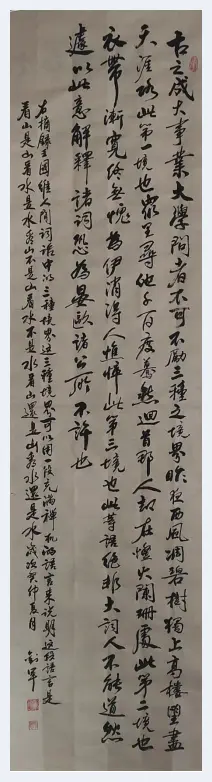 古之成大事業大學問者不可不励三種之境界昨夜西風凋碧樹獨上高樓望盡
天涯路此第一境也衆里尋他千百度驀然迴首那人却在燈火闌珊處此第二境也
衣帶漸寬終無愧為伊消得人憔悴此第三境也此等語絕非大詞人不能道然
遽以此意解釋諸詞恐為晏歐諸公所不許也
右摘錄王國維人間詞話中的三種境界這三種境界可以用一段充滿禪机的語言來說明這段語言是
看山是山看水是水看山不是山看水不是水看山還是山看水還是水歲次癸卯夏月 劉軍